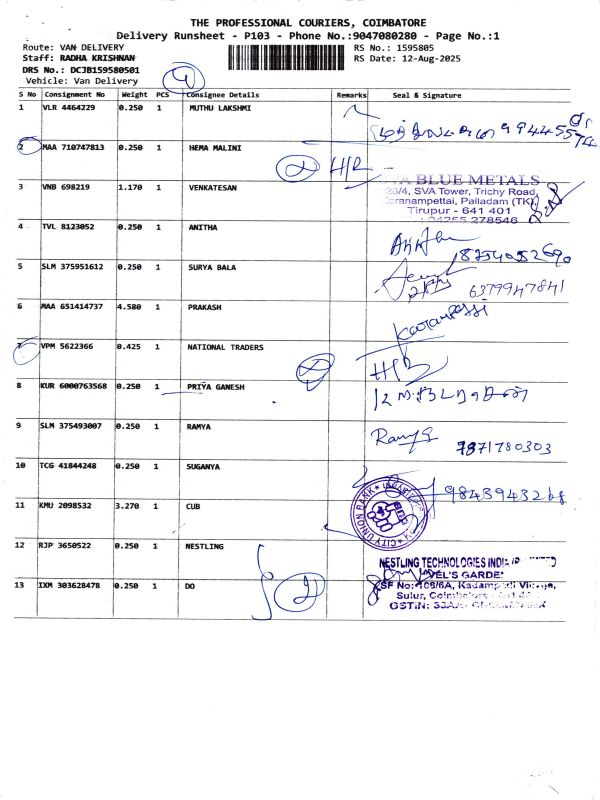 THE PROFESSIONAL COURIERS, COIMBATORE
Delivery Runsheet - P103 - Phone No.:9047080280 - Page No.:1
Route: VAN DELIVERY
RS No.: 1595805
Staff: RADHA KRISHNAN
RS Date: 12-Aug-2025
DRS No.: DCJB159580501
Vehicle: Van Delivery
S No Consignment No Weight PCS Consignee Details Remarks Seal & Signature
1 VLR 4464229 0.250 1 MUTHU LAKSHMI
2 MAA 710747813 0.250 1 HEMA MALINI H/R
3 VNB 698219 1.170 1 VENKATESAN
BLUE METALS
SVA Tower, Trichy Road,
Karanampettai, Palladam (TK)
Tirupur - 641 401
04255 278546
4 TVL 8123052 0.250 1 ANITHA
5 SLM 375951612 0.250 1 SURYA BALA 6379947841
6 MAA 651414737 4.580 1 PRAKASH
7 VPM 5622366 0.425 1 NATIONAL TRADERS H/R
8 KUR 6000763568 0.250 1 PRIYA GANESH
9 SLM 375493007 0.250 1 RAMYA Ramya 7871780303
10 TCG 41844248 0.250 1 SUGANYA
11 KMU 2098532 3.270 1 CUB
CITY UNION BANK
12 RJP 3650522 0.250 1 NESTLING
NESTLING TECHNOLOGIES INDIA
13 IXM 303628478 0.250 1 DO 2
SF No: 106/6A,
Sulur, Coimbatore
GSTIN: